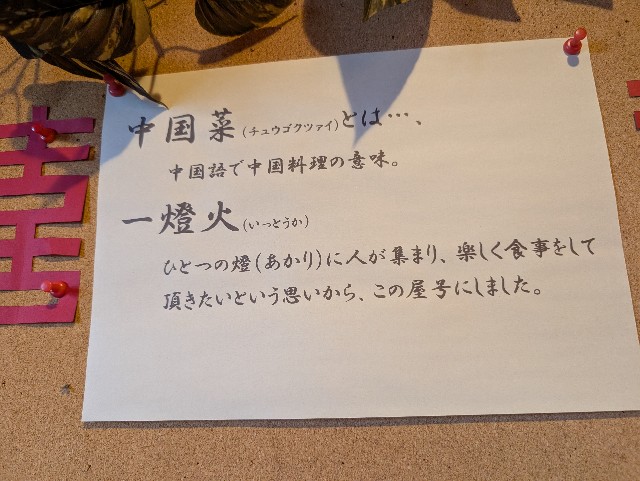 中国菜(チュウゴクツァイ)とは…、
中国語で中国料理の意味。
一燈火(いっとうか)
ひとつの燈(あかり)に人が集まり、楽しく食事をして
頂きたいという思いから、この屋号にしました。